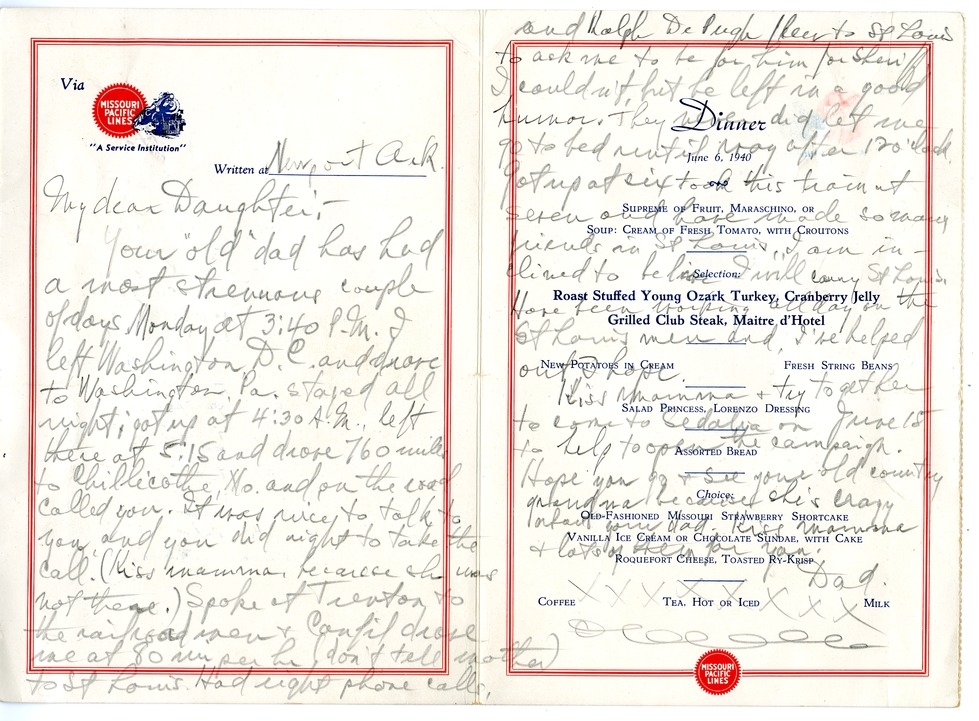 Via
MISSOURI
PACIFIC
LINES
"A Service Institution"
Written at Newport Ark.
My dear Daughter:-
Your "old" dad has had
a most strenuous couple
of days. Monday at 3:40 P.M. I
left Washington D.C. and drove
to Washington, Pa. stayed all
night, got up at 4:30 A.M. left
there at 5:15 and drove 760 miles
to Chillicothe, Mo. and on the road
called you. It was nice to talk to
you and you did right to take the
call. (Kiss mamma because she was
not there.) Spoke at Trenton to
the railroad men & Canfil drove
me at 80 mi per hr (don't tell mother)
to St Louis. Had eight phone calls,
and Ralph De Pugh Keep to St Louis
to ask me to be for him for sheriff
I couldn't, but he left in a good
humor. They did let me
go to bed until way after 12 o'clock
Got up at six took this train at
seven and have made so many
friends in St Louis, I am in-
clined to believe I will carry St Louis.
Have been working all day on the
St Louis men and I've helped
out I hope.
Kiss mamma & try to get her
to come to Sedalia on June 15
to help to open the campaign.
Hope you go & see your old country
grandma because she's crazy
about your dad. Kiss mamma
& lots of them for you.
Dad.
X X X X X X X X X X
Dinner
June 6, 1940
Supreme of Fruit, Maraschino, or
Soup: Cream of Fresh Tomato, with Croutons
Selection:
Roast Stuffed Young Ozark Turkey, Cranberry Jelly
Grilled Club Steak, Maitre d'Hotel
New Potatoes in Cream Fresh String Beans
Salad Princess, Lorenzo Dressing
Assorted Bread
Choice:
Old-Fashioned Missouri Strawberry Shortcake
Vanilla Ice Cream or Chocolate Sundae, with Cake
Roquefort Cheese, Toasted Ry-Krisp
Coffee Tea, Hot or Iced Milk
MISSOURI
PACIFIC
LINES